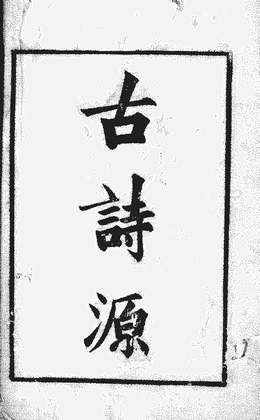 古詩源